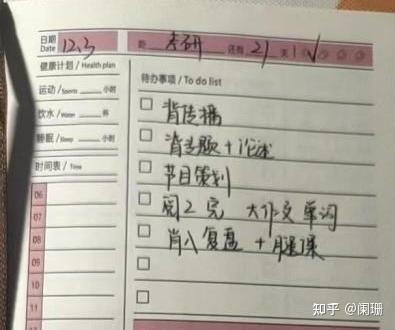 日期 Date 12.3
距 考研 还有 21 天
健康计划 / Health plan
运动 / Sports 小时
饮水 / Water 杯
睡眠 / Sleep 小时
时间表 / Time
06
07
08
09
10
11
待办事项 / To do list
背传播
背专题+论述
节目策划
阅2完 大作文 单词
肖八复盘 + 腿课
知乎 @阑珊